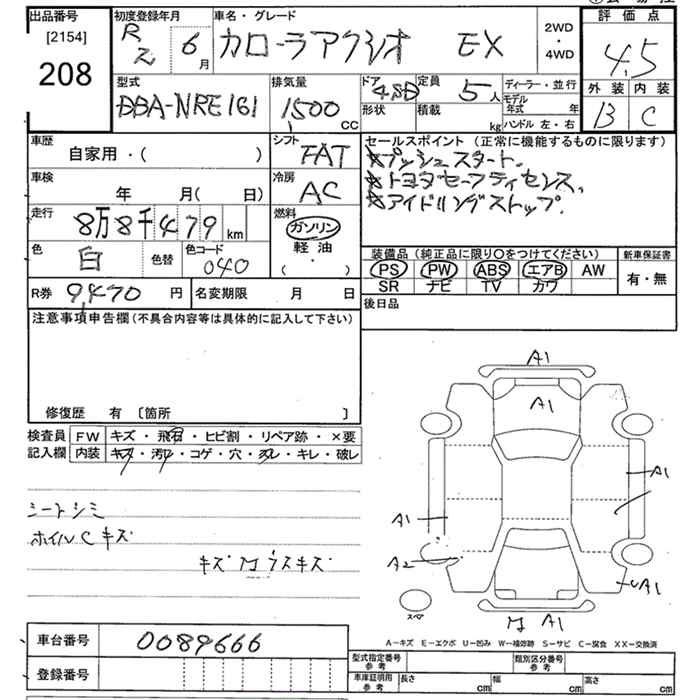 出品番号 [2154] 208
初度登録年月 R2 6月
車名・グレード カローラアクシオ EX
2WD・4WD
評価点 4.5
外装 B 内装 C
型式 DBA-NRE161
排気量 1500cc
ドア 4SD 形状
定員 5人
積載 kg
ディーラー・並行
モデル年式 年
ハンドル 左・右
車歴 自家用・( )
シフト FAT
車検 年 月( 日)
冷房 AC
走行 8万8千479km
燃料 ガソリン 軽油 ( ・ )
色 白 色替
色コード 040
R券 9,470円
名変期限 月 日
セールスポイント(正常に機能するものに限ります)
★プッシュスタート.
★トヨタセーフティセンス.
★アイドリングストップ.
装備品(純正品に限り○をつけてください)
PS PW ABS エアB AW
SR ナビ TV カワ
新車保証書 有・無
後日品
注意事項申告欄(不具合内容等は具体的に記入して下さい)
修復歴 有 [箇所 ]
検査員記入欄
FW キズ・飛石・ヒビ割・リペア跡・×要
内装 キズ・汚れ・コゲ・穴・スレ・キレ・破レ
シートシミ
ホイルCキズ
キズMウスキズ
A1
A1
A1
A1
A2
A1
M A1
スペア
A-キズ E-エクボ U-凹み W-補修跡 S-サビ C-腐食 XX-交換済
車台番号 0089666
登録番号
型式指定番号 参考
類別区分番号 参考
車庫証明用 参考 長さ cm 幅 cm 高さ cm